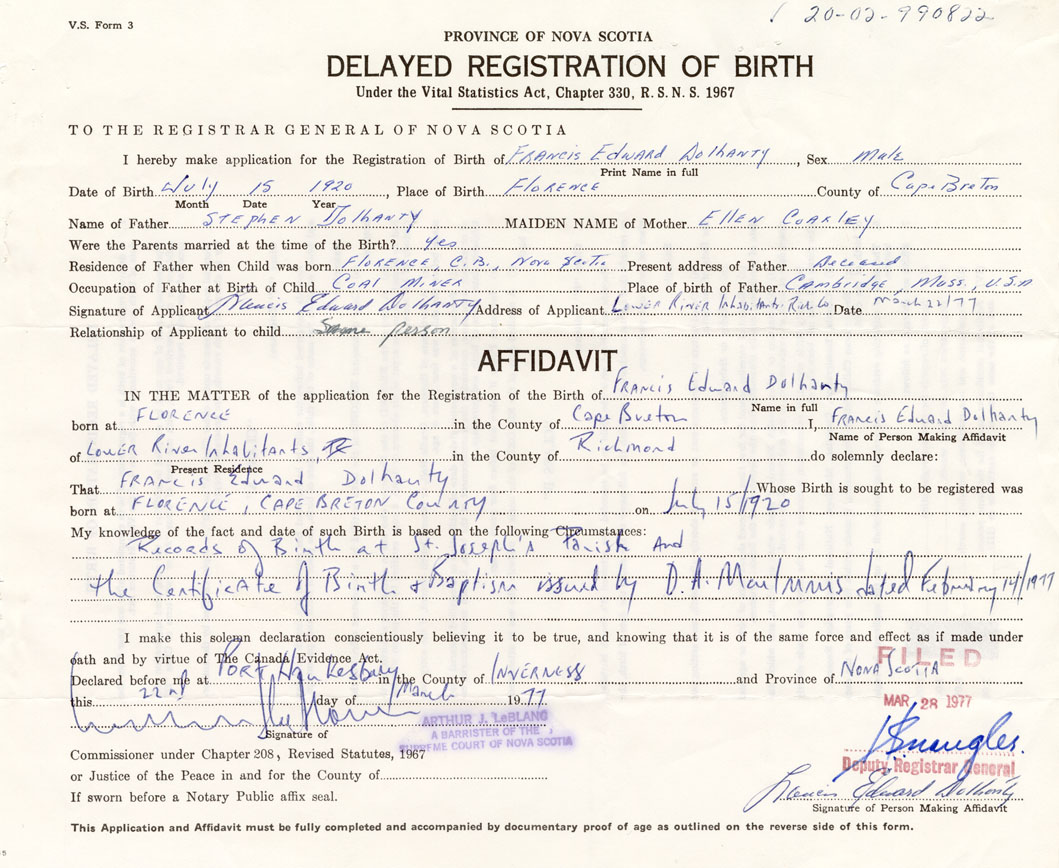 V.S. Form 3
20-02-990822
PROVINCE OF NOVA SCOTIA
DELAYED REGISTRATION OF BIRTH
Under the Vital Statistics Act, Chapter 330, R.S.N.S. 1967
TO THE REGISTRAR GENERAL OF NOVA SCOTIA
I hereby make application for the Registration of Birth of FRANCIS EDWARD DOLHANTY, Sex Male
Print Name in full
Date of Birth July 15 1920, Place of Birth FLORENCE County of Cape Breton
Month Date Year
Name of Father STEPHEN DOLHANTY MAIDEN NAME of Mother ELLEN COAKLEY
Were the Parents married at the time of the Birth? yes
Residence of Father when Child was born FLORENCE, C.B., NOVA SCOTIA Present address of Father Deceased
Occupation of Father at Birth of Child COAL MINER Place of birth of Father CAMBRIDGE, MASS., U.S.A
Signature of Applicant Francis Edward Dolhanty Address of Applicant LOWER RIVER INHABITANTS Rich Co. Date March 22/77
Relationship of Applicant to child Same person
AFFIDAVIT
IN THE MATTER of the application for the Registration of Birth of FRANCIS Edward Dolhanty
Name in full
born at FLORENCE in the County of Cape Breton I, FRANCIS Edward Dolhanty
Name of Person Making Affidavit
of LOWER River Inhabitants, in the County of Richmond do solemnly declare:
Present Residence
That FRANCIS Edward Dolhanty Whose Birth is sought to be registered was
born at FLORENCE, CAPE BRETON County on July 15/1920
My knowledge of the fact and date of such Birth is based on the following Circumstances:
Records of Birth at St. Joseph's Parish And
the Certificate of Birth & Baptism issued by D. A. MacInnis dated February 14/1977
I make this solemn declaration conscientiously believing it to be true, and knowing that it is of the same force and effect as if made under
oath and by virtue of The Canada Evidence Act.
FILED
Declared before me at PORT Hawkesbury in the County of INVERNESS and Province of NOVA SCOTIA
this 22nd day of March 1977
MAR 28 1977
Signature of
ARTHUR J. LeBLANC
A BARRISTER OF THE
SUPREME COURT OF NOVA SCOTIA
Commissioner under Chapter 208, Revised Statutes, 1967
Deputy Registrar General
or Justice of the Peace in and for the County of
Francis Edward Dolhanty
If sworn before a Notary Public affix seal.
Signature of Person Making Affidavit
This Application and Affidavit must be fully completed and accompanied by documentary proof of age as outlined on the reverse side of this form.